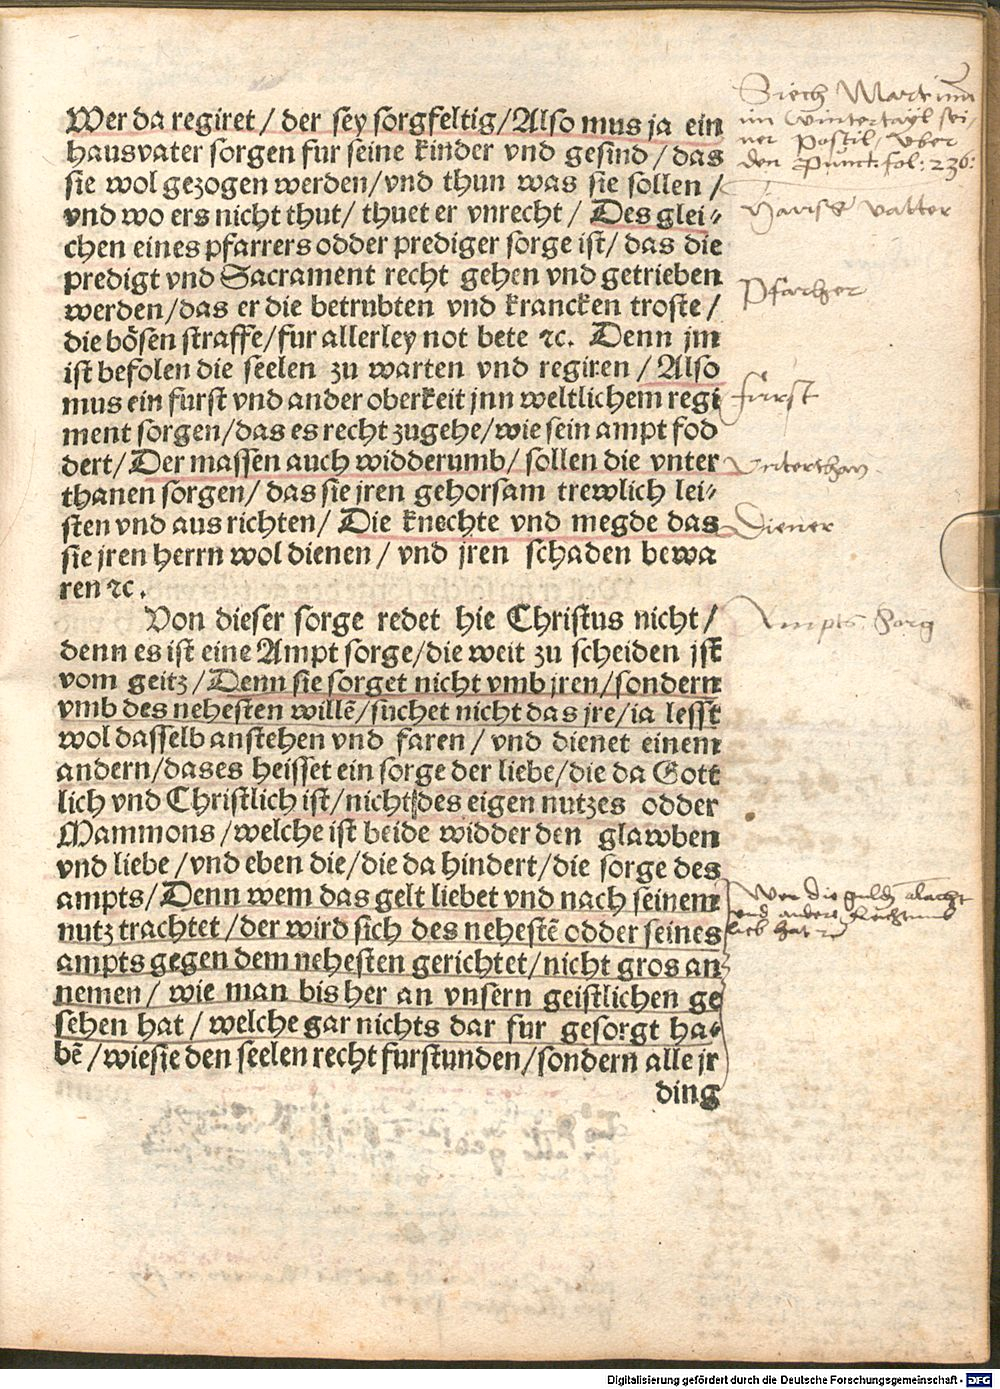 Wer da regiret / der sey sorgfeltig / Also mus ja ein
hausvater sorgen fur seine kinder vnd gesind / das
sie wol gezogen werden / vnd thun was sie sollen /
vnd wo ers nicht thut / thuet er vnrecht / Des glei⸗
chen eines pfarrers odder prediger sorge ist / das die
predigt vnd Sacrament recht gehen vnd getrieben
werden / das er die betrubten vnd krancken troste /
die bösen straffe / fur allerley not bete ꝛc. Denn jm
ist befolen die seelen zu warten vnd regiren / Also
mus ein furst vnd ander oberkeit jnn weltlichem regi
ment sorgen / das es recht zugehe / wie sein ampt fod
dert / Der massen auch widderumb / sollen die vnter
thanen sorgen / das sie jren gehorsam trewlich lei⸗
sten vnd aus richten / Die knechte vnd megde das
sie jren herrn wol dienen / vnd jren schaden bewa
ren ꝛc.
Von dieser sorge redet hie Christus nicht /
denn es ist eine Ampt sorge / die weit zu scheiden jst
vom geitz / Denn sie sorget nicht vmb jren / sondern
vmb des nehesten willẽ / suchet nicht das jre / ia lesst
wol dasselb anstehen vnd faren / vnd dienet einem
andern / das es heisset ein sorge der liebe / die da Gott
lich vnd Christlich ist / nicht des eigen nutzes odder
Mammons / welche ist beide widder den glawben
vnd liebe / vnd eben die / die da hindert / die sorge des
ampts / Denn wem das gelt liebet vnd nach seinem
nutz trachtet / der wird sich des nehestẽ odder seines
ampts gegen dem nehesten gerichtet / nicht gros an
nemen / wie man bis her an vnsern geistlichen ge
sehen hat / welche gar nichts dar fur gesorgt ha⸗
bẽ / wie sie den seelen recht furstunden / sondern alle jr
ding
Siech Martinum
im Wintertayl sei/
ner Postil, vber
den Punct: fol: 236:
Hauss vatter
Pfarherr
fürst
vnterthan
Diener
Ampts Sorg
Wer die
vnd andere Reichtumb
lieb hat ꝛc
Digitalisierung gefördert durch die Deutsche Forschungsgemeinschaft - DFG